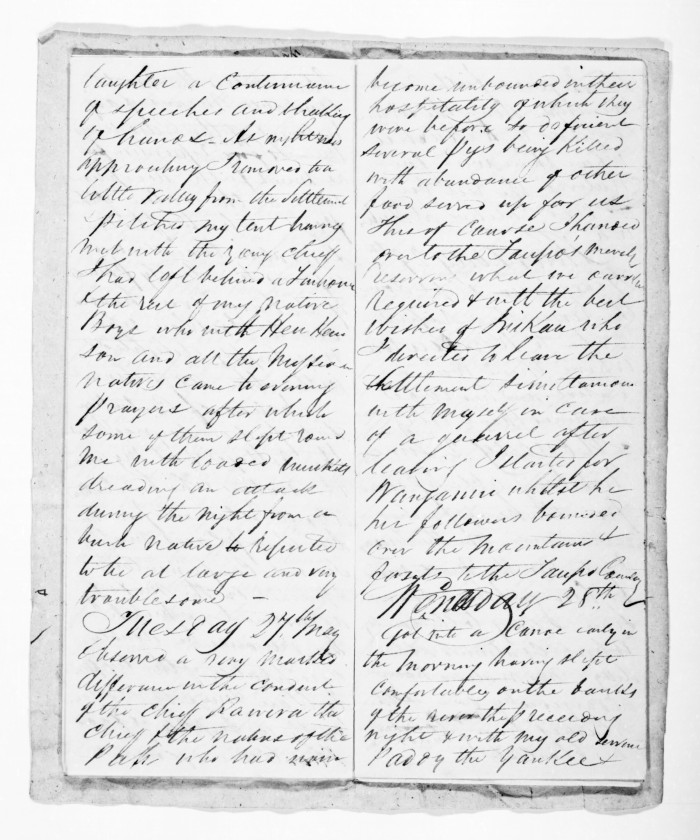 laughter a Continuance
of speeches and shaking
of hands - As night was
approaching I removed to a
little Valley from the Settlement
pitched my tent having
met with the young chief
I had left behind a Tauhara
& the rest of my native
Boys who with Heu Heu
son and all the Mission
natives came to evening
prayers after which
some of them slept round
me with loaded muskets
dreading an attack
during the night from a
bush native reported
to be at large and very
troublesome —
Tuesday 27th May
Observed a very marked
difference in the conduct
of the chief the
chief of the natives of the
Pah who had now
become unbounded in their
hospitality of which they
were before so deficient
several Pigs being killed
with abundance of other
food served up for us
this of course I handed
over to the Taupos merely
reserving what we ourselves
required & with the best
wishes of who
I directed to leave the
settlement simultaneous
with myself in case
of a quarrel after
leaving I started for
Wanganui whilst he
his followers
over the mountains &
forests to the Taupo Country
Wensday 28th
Got into a Canoe early in
the morning having slept
comfortabley on the banks
of the river the preceeding
night & with my old servant
Paddy the Yankee &